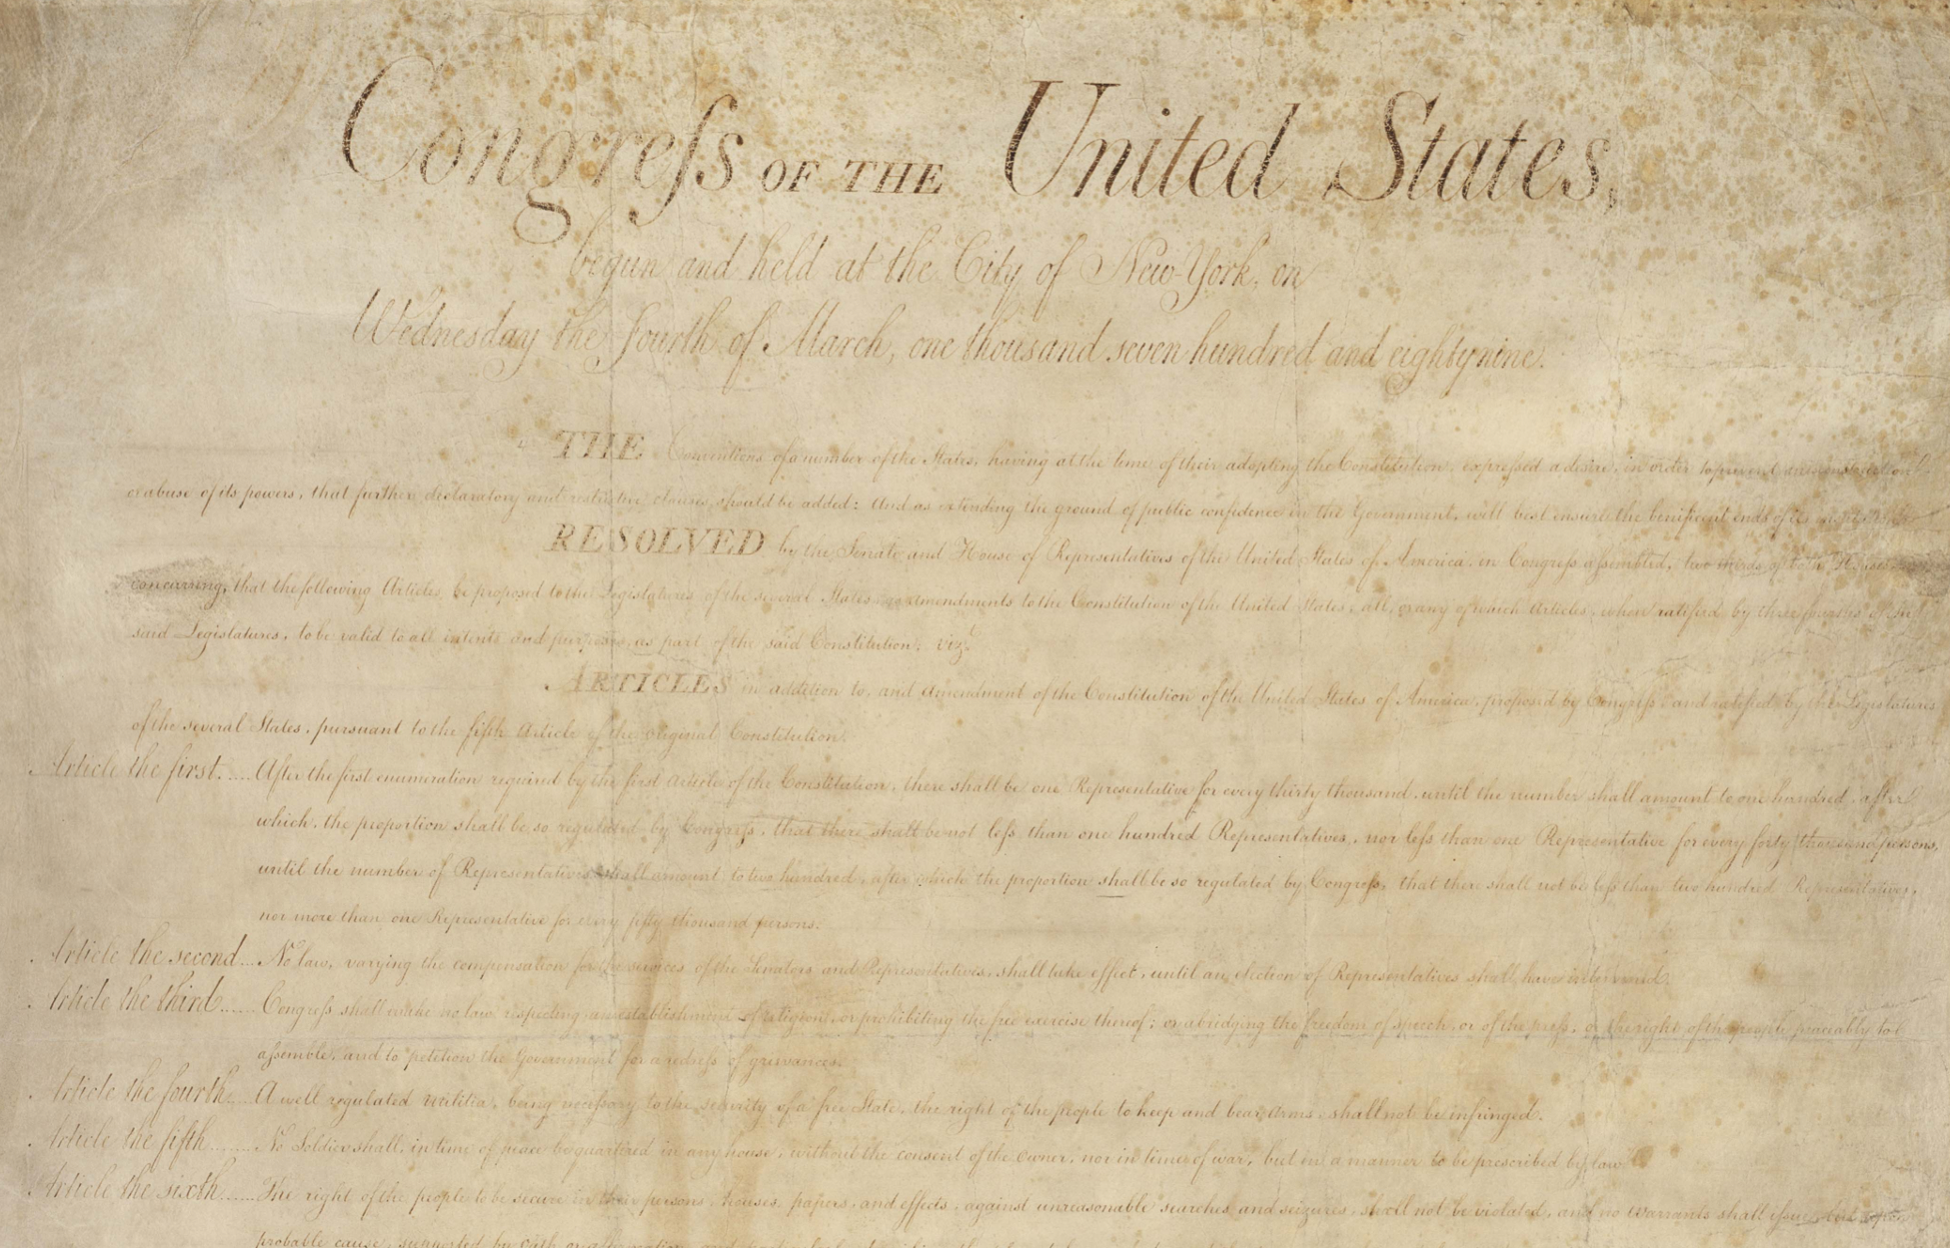 Congreſs OF THE United States,
begun and held at the City of New-York, on
Wednesday the Fourth of March, one thousand seven hundred and eighty nine.
THE Conventions of a number of the States, having at the time of their adopting the Constitution, expreſsed a desire, in order to prevent misconstruction
or abuse of its powers, that further declaratory and restrictive clauses should be added: And as extending the ground of public confidence in the Government, will best ensure the beneficent ends of its
RESOLVED by the Senate and House of Representatives of the United States of America, in Congreſs aſsembled, two thirds of both Houses
concurring, that the following Articles be proposed to the Legislatures of the several States, as amendments to the Constitution of the United States, all, or any of which Articles, when ratified by three fourths of the
said Legislatures, to be valid to all intents and purposes, as part of the said Constitution; vizt.
ARTICLES in addition to, and amendment of the Constitution of the United States of America, proposed by Congreſs, and ratified by the Legislatures
of the several States, pursuant to the fifth Article of the original Constitution.
Article the first..... After the first enumeration required by the first Article of the Constitution, there shall be one Representative for every thirty thousand, until the number shall amount to one hundred, after
which, the proportion shall be so regulated by Congreſs, that there shall be not leſs than one hundred Representatives, nor leſs than one Representative for every forty thousand persons,
until the number of Representatives shall amount to two hundred, after which the proportion shall be so regulated by Congreſs, that there shall not be leſs than two hundred Representatives,
nor more than one Representative for every fifty thousand persons.
Article the second... No law, varying the compensation for the services of the Senators and Representatives, shall take effect, until an election of Representatives shall have intervened.
Article the third...... Congreſs shall make no law respecting an establishment of religion, or prohibiting the free exercise thereof; or abridging the freedom of speech, or of the preſs; or the right of the people peaceably to
aſsemble, and to petition the Government for a redreſs of grievances.
Article the fourth.... A well regulated militia, being neceſsary to the security of a free State, the right of the people to keep and bear arms, shall not be infringed.
Article the fifth....... No Soldier shall, in time of peace be quartered in any house, without the consent of the owner, nor in time of war, but in a manner to be prescribed by law.
Article the sixth...... The right of the people to be secure in their persons, houses, papers, and effects, against unreasonable searches and seizures, shall not be violated, and no warrants shall iſsue, but upon
probable cause, supported by oath or affirmation,